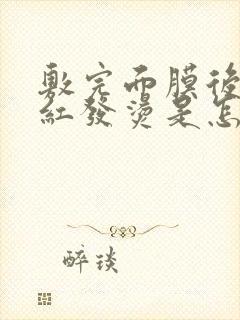 敷完面膜後
紅發燙是怎
醉琰